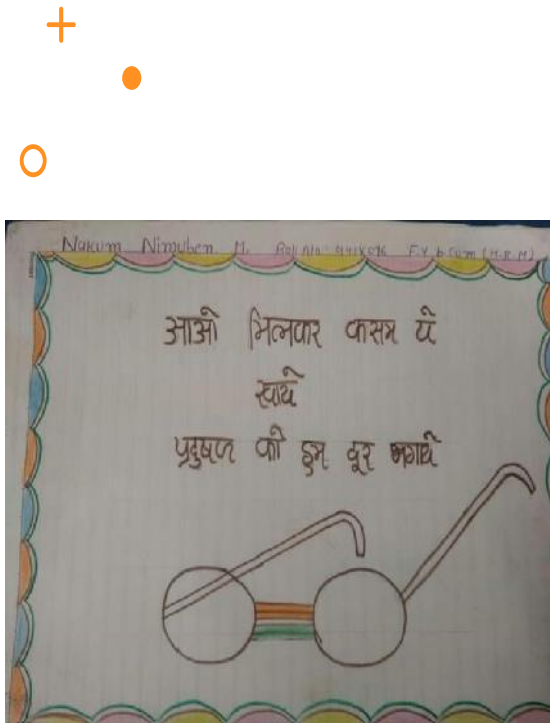 Nakum Nimuben M. Roll No F.Y. b.com (M.R.M)
आओ मिलकर कसम ये
खाये
प्रदुषण को हम दूर भगाये